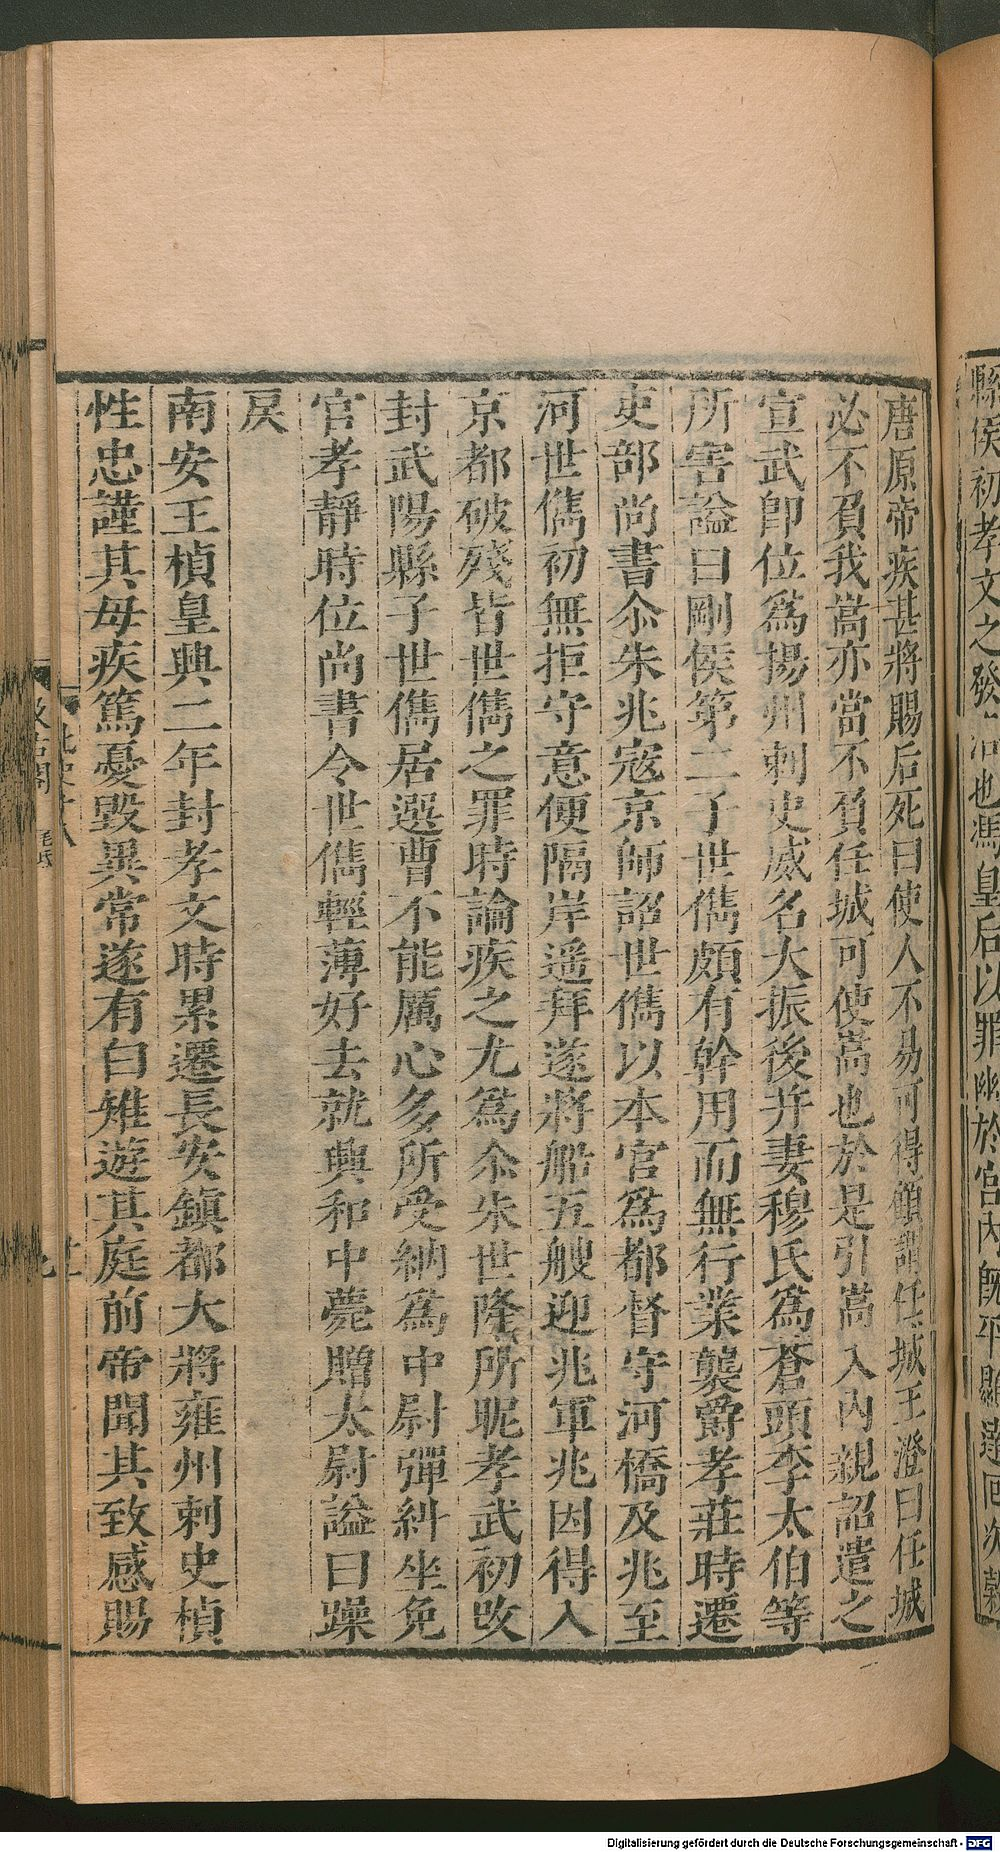 縣侯初孝文之發也馮皇后以罪幽於宮內旣平顯達回次穀
唐原帝疾甚將賜后死曰使人不易可得顧謂任城王澄曰任城
必不負我嵩亦當不負任城可使嵩也於是引嵩入內親詔遣之
宣武卽位爲揚州刺史威名大振後幷妻穆氏爲蒼頭李太伯等
所害謚曰剛侯第二子世儁頗有幹用而無行業襲爵孝莊時遷
吏部尚書尒朱兆寇京師詔世儁以本官爲都督守河橋及兆至
河世儁初無拒守意便隔岸遥拜遂將船五艘迎兆軍兆因得入
京都破殘皆世儁之罪時論疾之尤爲尒朱世隆所昵孝武初攺
封武陽縣子世儁居選曹不能厲心多所受納爲中尉彈糾坐免
官孝靜時位尚書令世儁輕薄好去就興和中薨贈太尉謚曰躁
戾
南安王楨皇興二年封孝文時累遷長安鎮都大將雍州刺史楨
性忠謹其母疾篤憂毀異常遂有白雉遊其庭前帝聞其致感賜
Digitalisierung gefördert durch die Deutsche Forschungsgemeinschaft - DFG